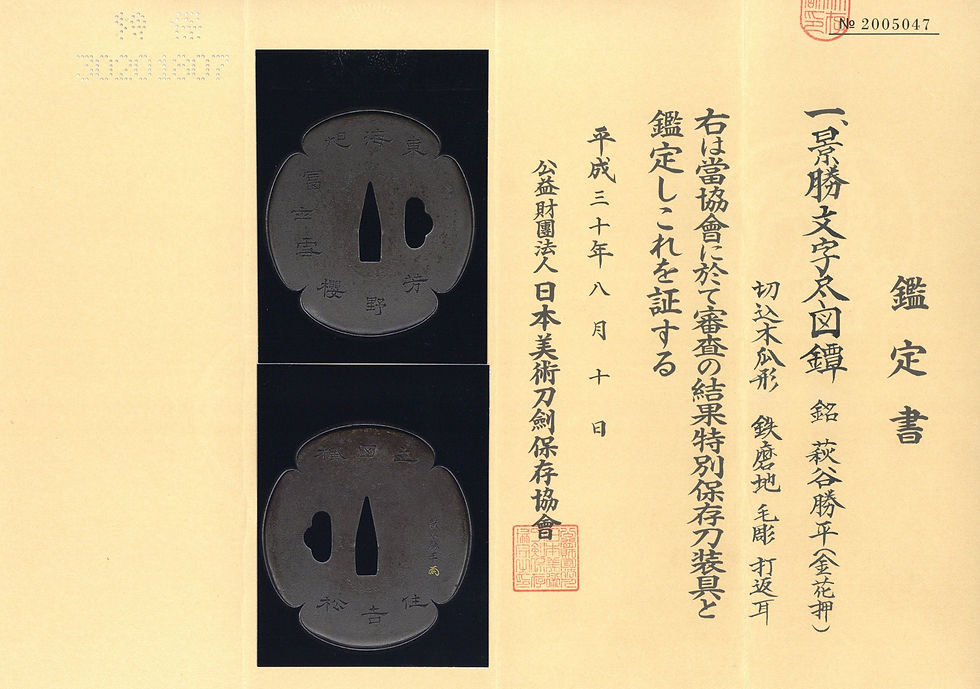 № 2005047
鑑定書
一、景勝文字尽図鐔 銘 萩谷勝平(金花押)
切込木瓜形 鉄磨地 毛彫 打返耳
右は當協會に於て審査の結果特別保存刀装具と
鑑定しこれを証する
平成三十年八月十日
公益財團法人日本美術刀劍保存協會
30201807
東海
芳野櫻
住吉松